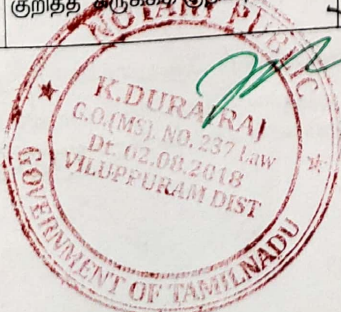 குறித்த
NOTARY PUBLIC
K.DURAIRAJ
G.O.(MS). NO. 237 Law
Dt. 02.08.2018
VILUPPURAM DIST
GOVERNMENT OF TAMILNADU